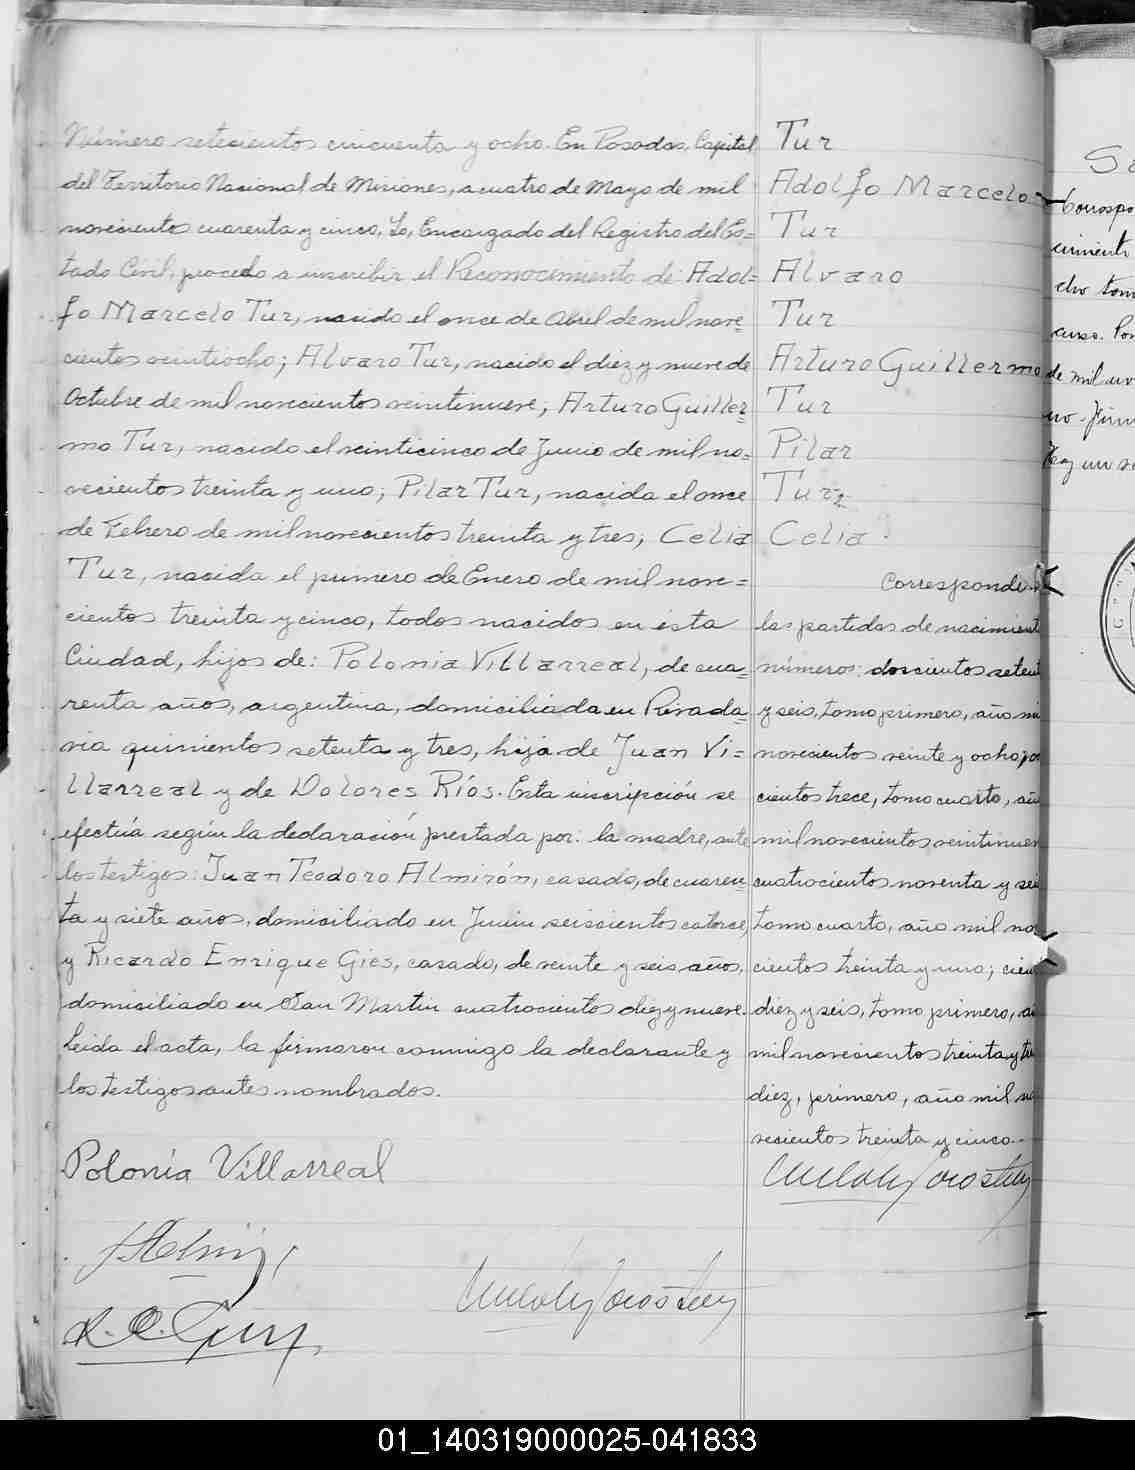 Número setecientos cincuenta y ocho. En Posadas, Capital
del Territorio Nacional de Misiones, a cuatro de Mayo de mil
novecientos cuarenta y cinco, Yo, Encargado del Registro del Es=
tado Civil, procedo a inscribir el Reconocimiento de: Adol=
fo Marcelo Tur, nacido el once de Abril de mil nove=
cientos veintiocho; Alvaro Tur, nacido el diez y nueve de
Octubre de mil novecientos veintinueve; Arturo Guiller=
mo Tur, nacido el veinticinco de Junio de mil no=
vecientos treinta y uno; Pilar Tur, nacida el once
de Febrero de mil novecientos treinta y tres; Celia
Tur, nacida el primero de Enero de mil nove=
cientos treinta y cinco, todos nacidos en ésta
Ciudad, hijos de: Polonia Villarreal, de cua=
renta años, argentina, domiciliada en Rivada=
via quinientos setenta y tres, hija de Juan Vi=
llarreal y de Dolores Ríos. Esta inscripción se
efectúa según la declaración prestada por: la madre, ante
los testigos: Juan Teodoro Almirón, casado, de cuaren=
ta y siete años, domiciliado en Junín seiscientos catorce,
y Ricardo Enrique Gies, casado, de veinte y seis años,
domiciliado en San Martin cuatrocientos diez y nueve.
Leida el acta, la firmaron conmigo la declarante y
los testigos antes nombrados.
Polonia Villarreal
Tur
Adolfo Marcelo
Tur
Alvaro
Tur
Arturo Guillermo
Tur
Pilar
Tur
Celia
Corresponde
las partidas de nacimient
números: doscientos setent
y seis, tomo primero, año mi
novecientos veinte y ocho;
cientos trece, tomo cuarto, añ
mil novecientos veintinuev
cuatrocientos noventa y sei
tomo cuarto, año mil no
cientos treinta y uno; cien
diez y seis, tomo primero, a
mil novecientos treinta y tr
diez, primero, año mil no
vecientos treinta y cinco.-
Correspo
cimiento
cho tom
curso. Po
de mil nov
no. Firm
Hay un se
01_140319000025-041833